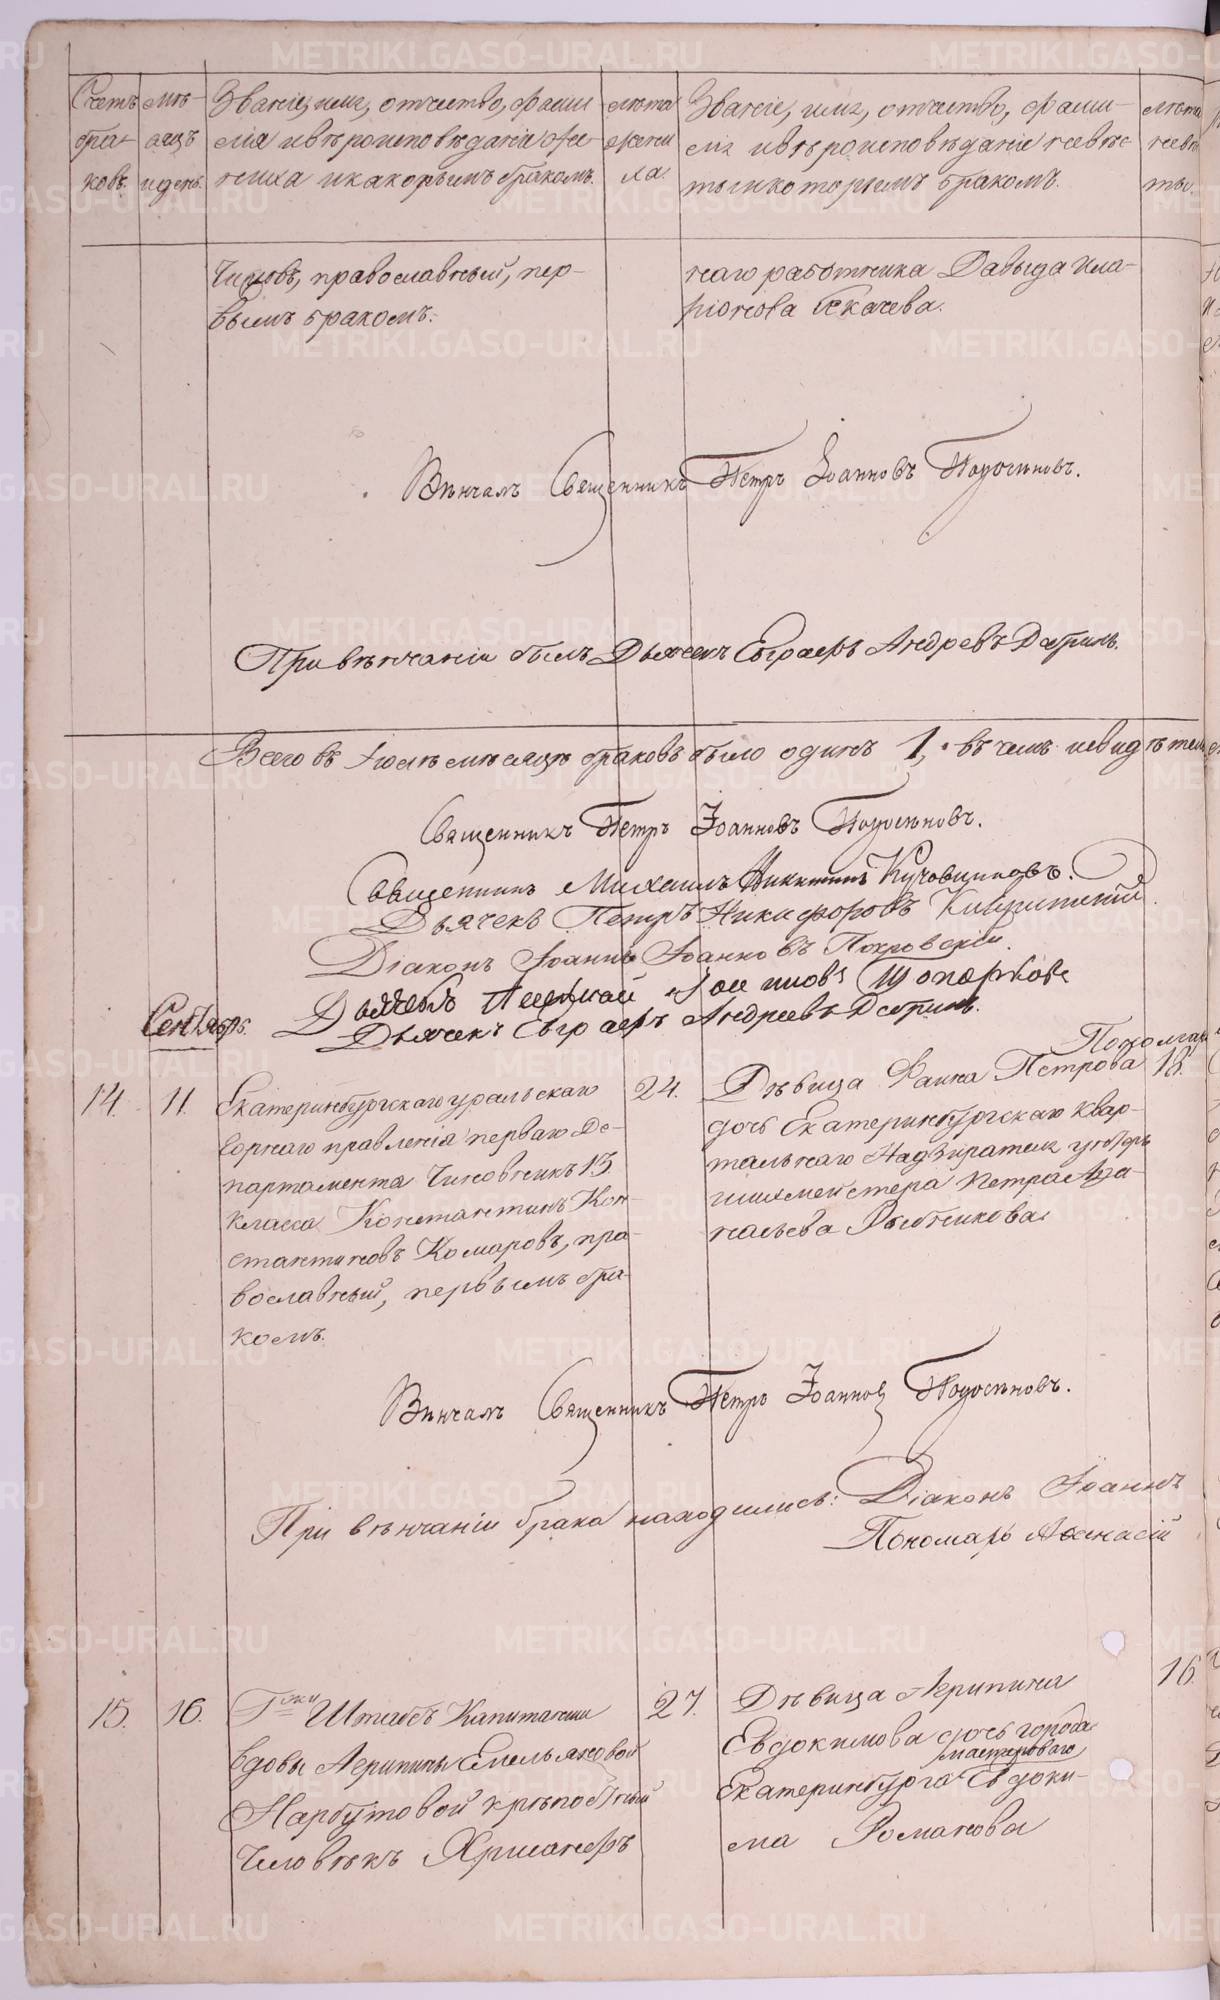 Счетъ браковъ.
мѣсяцъ и день.
Званіе, имя, отчество, фами-
лія и вѣроисповѣданіе же-
ниха и какорымъ бракомъ.
лѣта жени
ха.
Званіе, имя, отчество, фами-
лія и вѣроисповѣданіе невѣс
ты и которымъ бракомъ.
лѣта
невѣ
ты.
православный, пер-
вымъ бракомъ.
наго работника Давыда Ила-
ріонова
Вѣнчалъ Священникъ Петръ Іоанновъ Подосѣновъ.
При вѣнчаніи былъ Дьячекъ Евграфъ Андреевъ
Всего въ Іюлѣ мѣсяцѣ браковъ было одинъ 1, въ чемъ и свидѣтель
Священникъ Петръ Іоанновъ Подосѣновъ.
Священникъ Михаилъ Никитинъ
Дьячекъ Петръ Никифоровъ
Діаконъ Іоаннъ Іоанновъ Покровскій.
Дьячекъ Топорковъ
Дьячекъ Евграфъ Андреевъ
Сентябрь.
14.
11.
Екатеринбургскаго уральскаго
Горнаго правленія перваго Де-
партамента Чиновникъ 13
класса Константинъ Кон-
стантиновъ Комаровъ, пра-
вославный, первымъ бра-
комъ.
24.
Дѣвица Фаина Петрова
дочь Екатеринбургскаго квар-
тальнаго Надзирателя унтеръ
шихмейстера Петра Ада-
нальева Рыбникова.
18.
Вѣнчалъ Священникъ Петръ Іоанновъ Подосѣновъ.
При вѣнчаніи брака находились: Діаконъ Іоаннъ
Пономарь Афанасій
15.
16.
Гжи Штабсъ Капитанши
вдовы Агрипины Емельяновой
Нарбутовой крѣпостный
Человѣкъ Хрисанфъ
27.
Дѣвица Агрипина
Евдокимова дочь города
мастероваго
Екатеринбурга Евдоки-
ма Романова
16.
METRIKI.GASO-URAL.RU